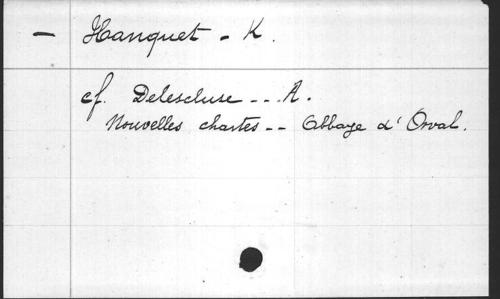 — Hanquet - K.
cf. Delescluse - - - A.
Nouvelles chartes - - Abbaye d'Orval.